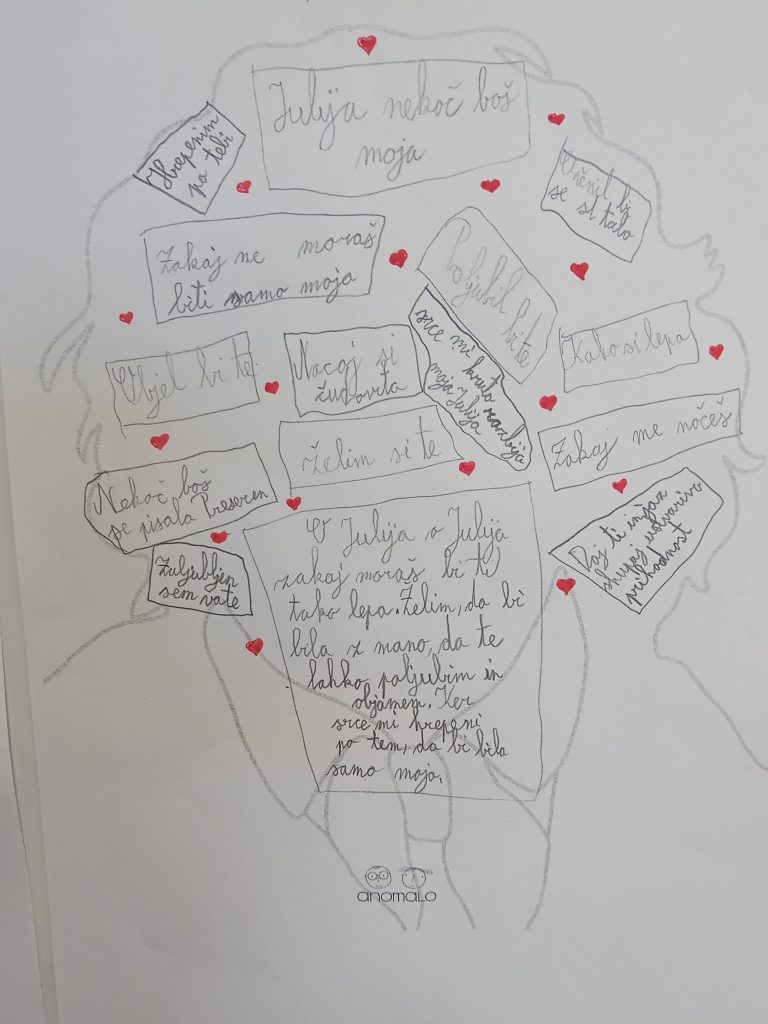 Julija nekoč boš
moja
Hrepenim
po tebi
se si tako
Zakaj ne moraš
biti samo moja
Poljubil bi te
srce mi kruto razbija
moja Julija
Objel bi te
Nocoj si
čudovita
Kako si lepa
Želim si te
Zakaj me nočeš
Nekoč boš
se pisala Preseren
Zaljubljen
sem vate
Daj ti in jaz
skupaj ustvariva
prihodnost
O Julija o Julija
zakaj moraš bi ti
tako lepa. Želim, da bi
bila z mano, da te
lahko poljubim in
objamem. Ker
srce mi hrepeni
po tem, da bi bila
samo moja.
anomalo